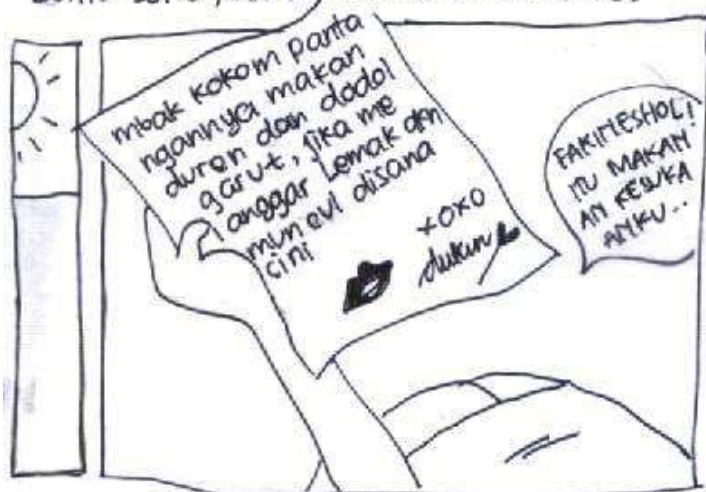 mbak kokom panta
ngannya makan
duren dan dodol
garut, jika me
anggar Lemak akn
muncul disana
cini
xoxo
dukun
FAKIMESHOL!
ITU MAKAN
AN KESUKA
ANKU..